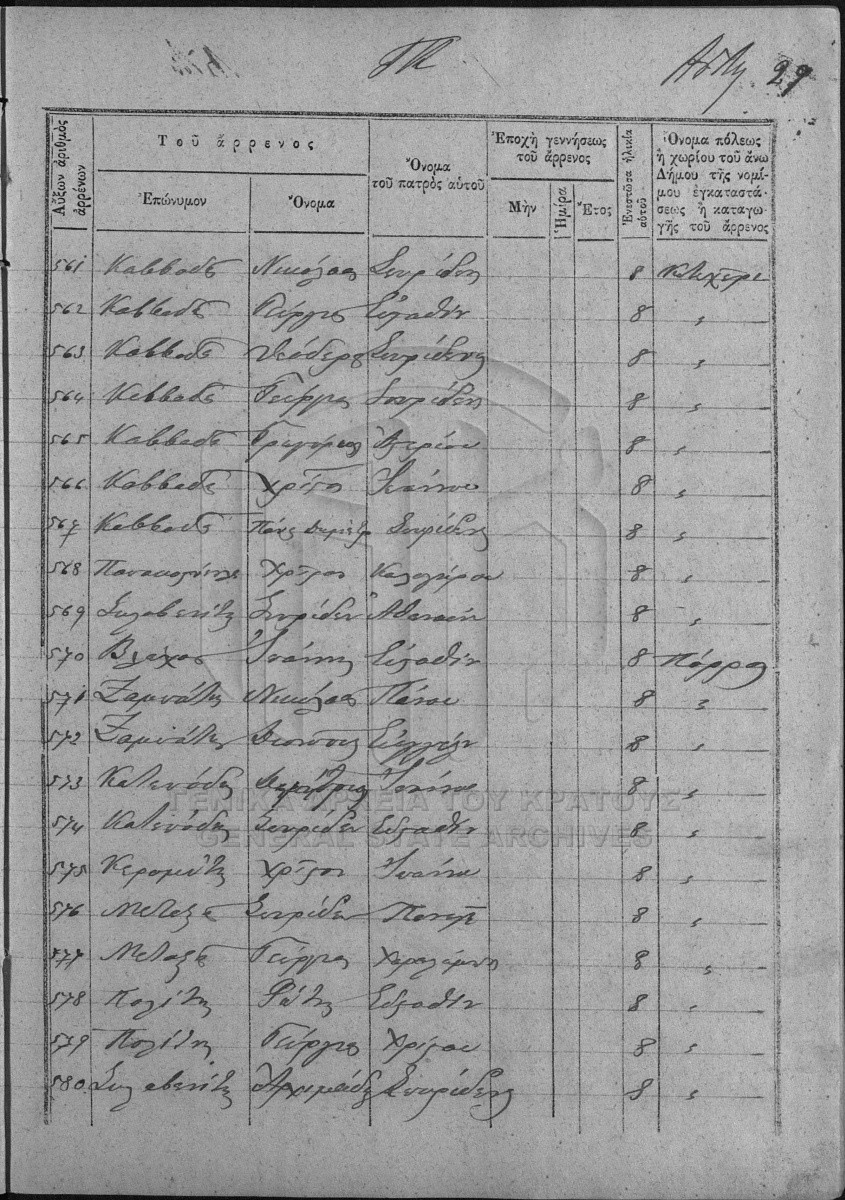 29
Αὔξων ἀριθμὸς ἀρρένων
Τοῦ ἄρρενος
Ἐπώνυμον
Ὄνομα
Ὄνομα τοῦ πατρὸς αὐτοῦ
Ἐποχὴ γεννήσεως τοῦ ἄρρενος
Μὴν
Ἡμέρα
Ἔτος
Ἐνεστῶσα ἡλικία αὐτοῦ
Ὄνομα πόλεως
ἢ χωρίου τοῦ ἄνω
Δήμου τῆς νομί-
μου ἐγκαταστά-
σεως ἢ καταγω-
γῆς τοῦ ἄρρενος
561 Καββαδᾶς Νικόλαος Σπυρίδων 8
562 Καββαδᾶς Γεώργιος Εὐσταθίου 8 "
563 Καββαδᾶς Θεόδωρος Σπυρίδωνος 8 "
564 Καββαδᾶς Γεώργιος Σπυρίδωνος 8 "
565 Καββαδᾶς Γρηγόριος 8 "
566 Καββαδᾶς Χρῆστος Ἰωάννου 8 "
567 Καββαδᾶς Σπυρίδωνος 8 "
568 Χρῆστος Καλογήρου 8 "
569 Σκλαβενίτης Σπυρίδων Ἀθανασίου 8 "
570 Βλάχος Ἰωάννης Εὐσταθίου 8 Πόρρος
571 Ζαμπάτης Νικόλαος Πάνου 8 "
572 Ζαμπάτης Διονύσιος Εὐαγγέλου 8 "
573 Κατωπόδης Δημήτριος Ἰωάννου 8 "
574 Κατωπόδης Σπυρίδων Εὐσταθίου 8 "
575 Χρῆστος Ἰωάννου 8 "
576 Μεταξᾶς Σπυρίδων Παναγῆ 8 "
577 Μεταξᾶς Γεώργιος Χαραλάμπους 8 "
578 Πολίτης Φώτης Εὐσταθίου 8 "
579 Πολίτης Γεώργιος Χρήστου 8 "
580 Σκλαβενίτης Ἀρχιμήδης Σπυρίδωνος 8 "
ΓΕΝΙΚΑ ΑΡΧΕΙΑ ΤΟΥ ΚΡΑΤΟΥΣ
GENERAL STATE ARCHIVES